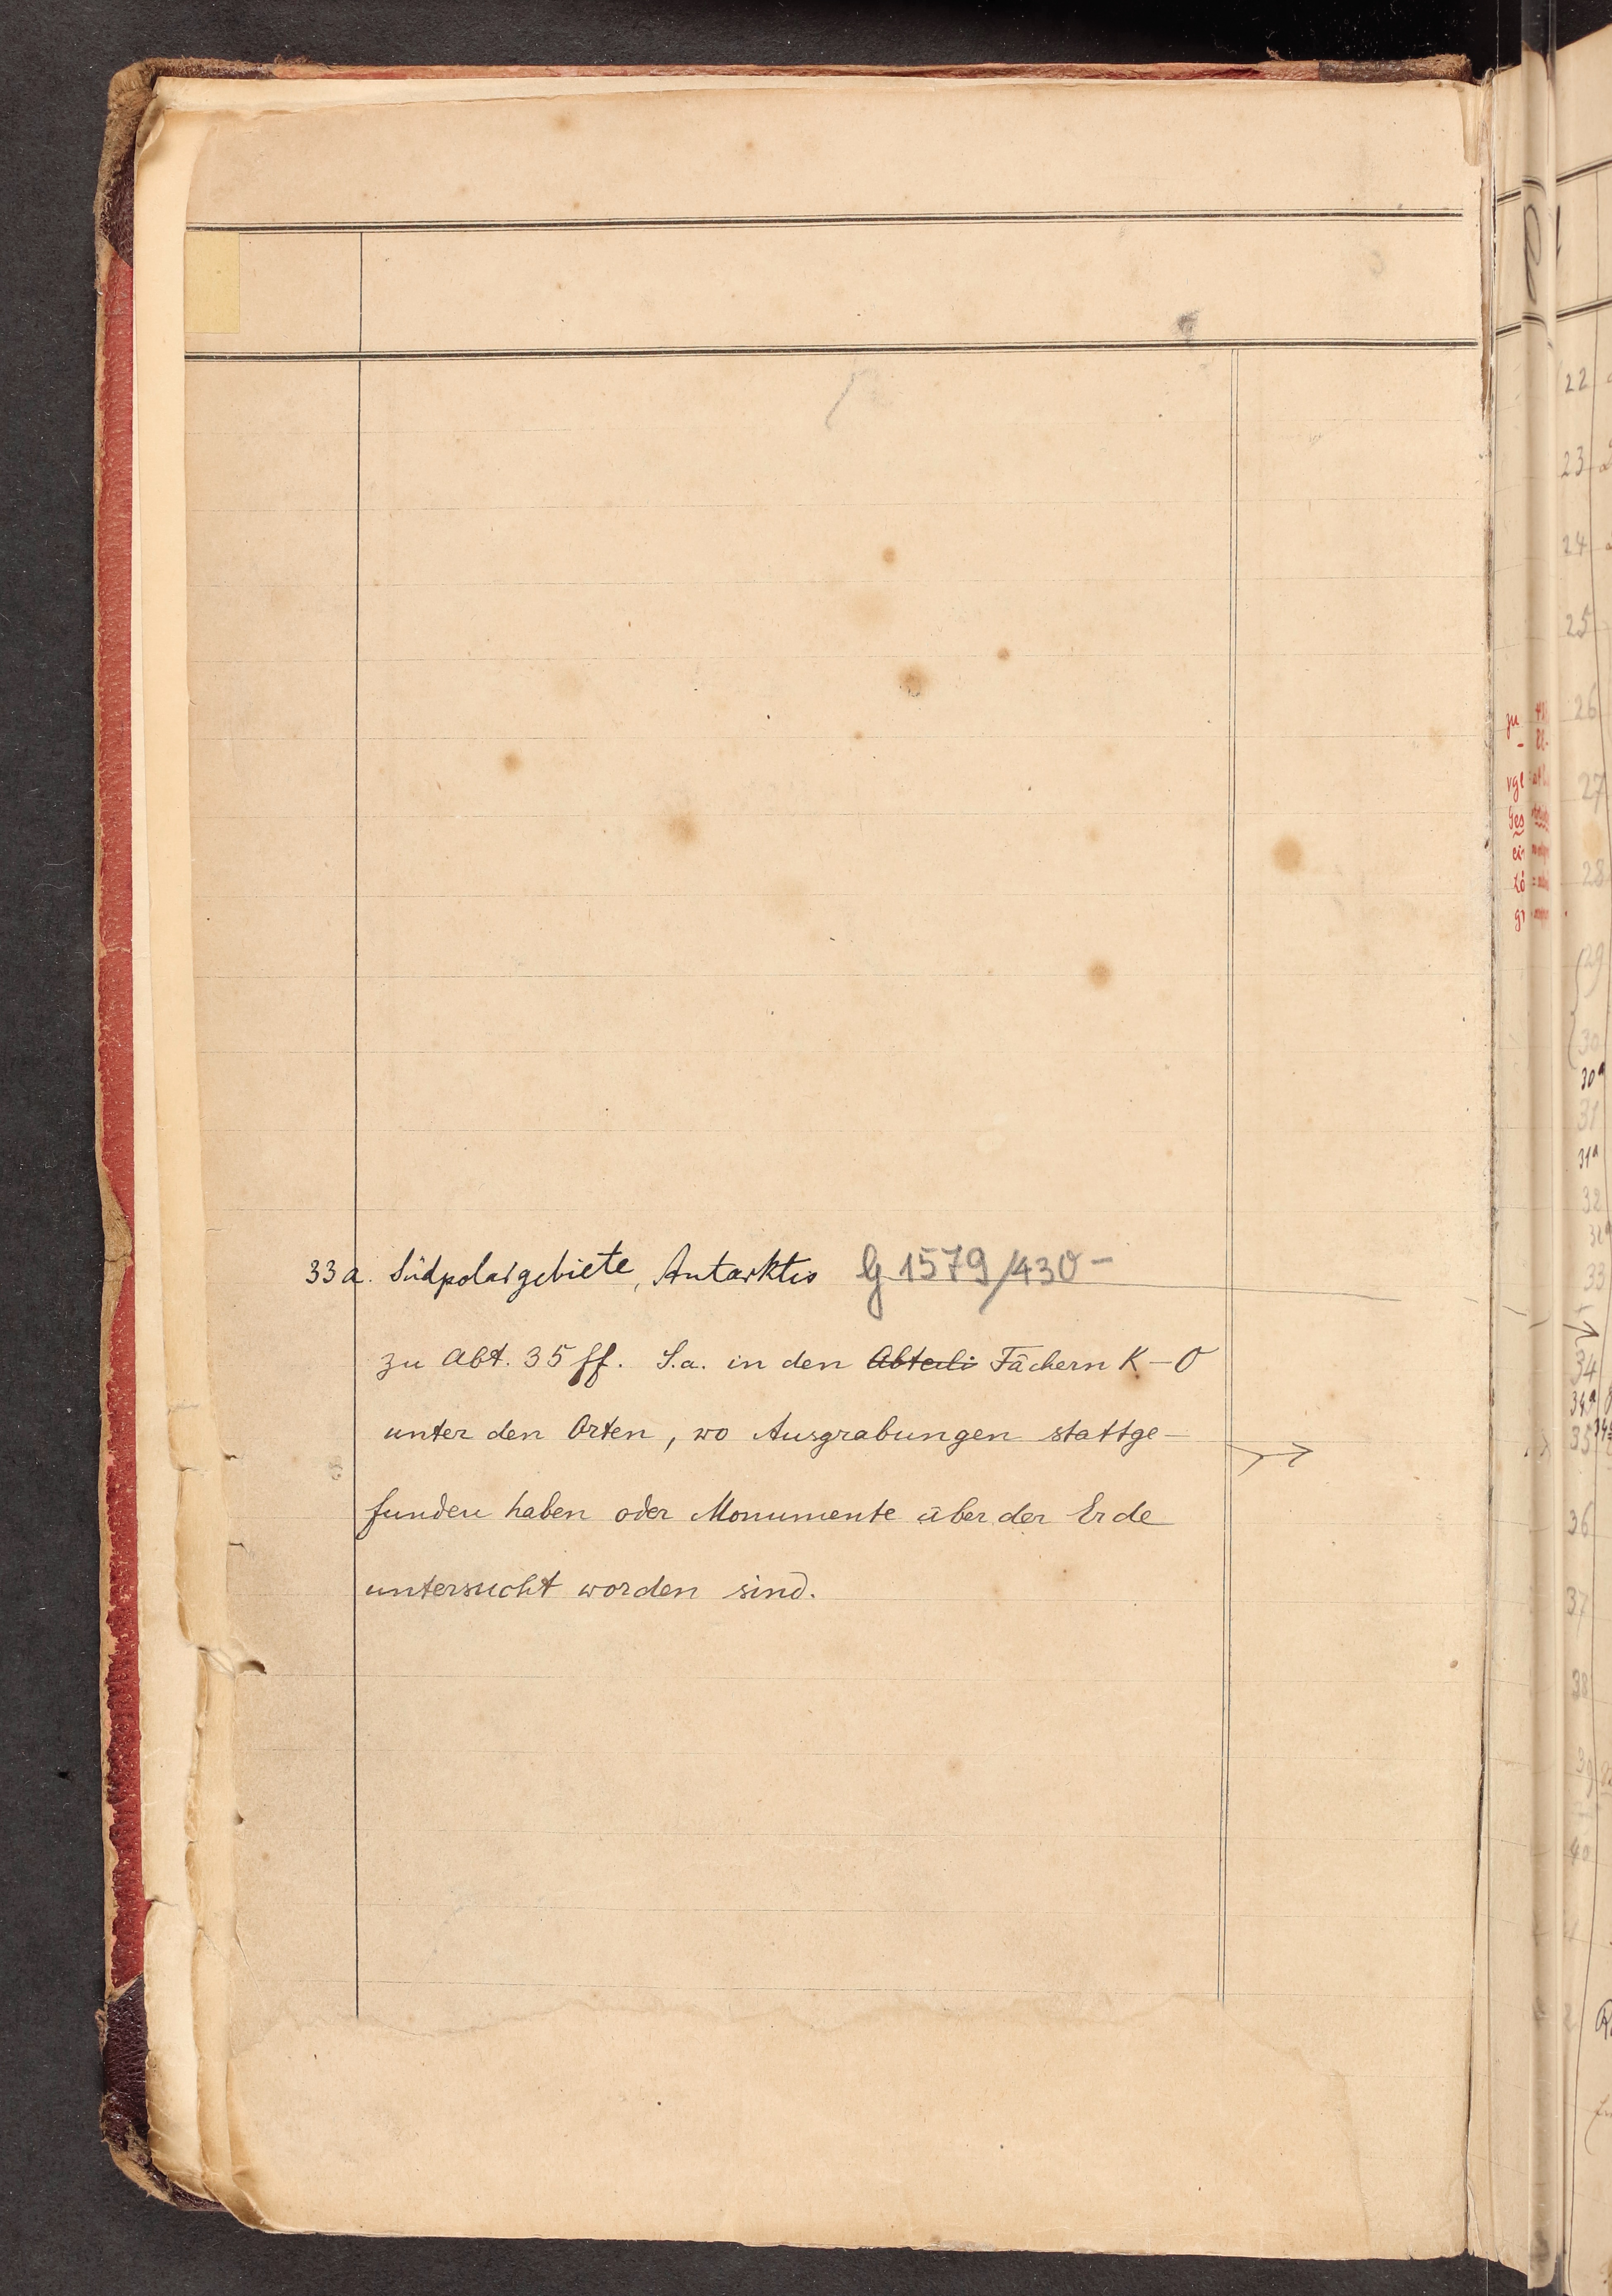 33a. Südpolargebiete, Antarktis G 1579/430-
zu Abt. 35 ff. S.a. in den Abteili Fächern K-O
unter den Orten, wo Ausgrabungen stattge-
funden haben oder Monumente über der Erde
untersucht worden sind.
22
23
24
25
26
27
28
29
30
30a
31
31a
32
33
34
34a
35
36
37
38
39
40
zu
vgl